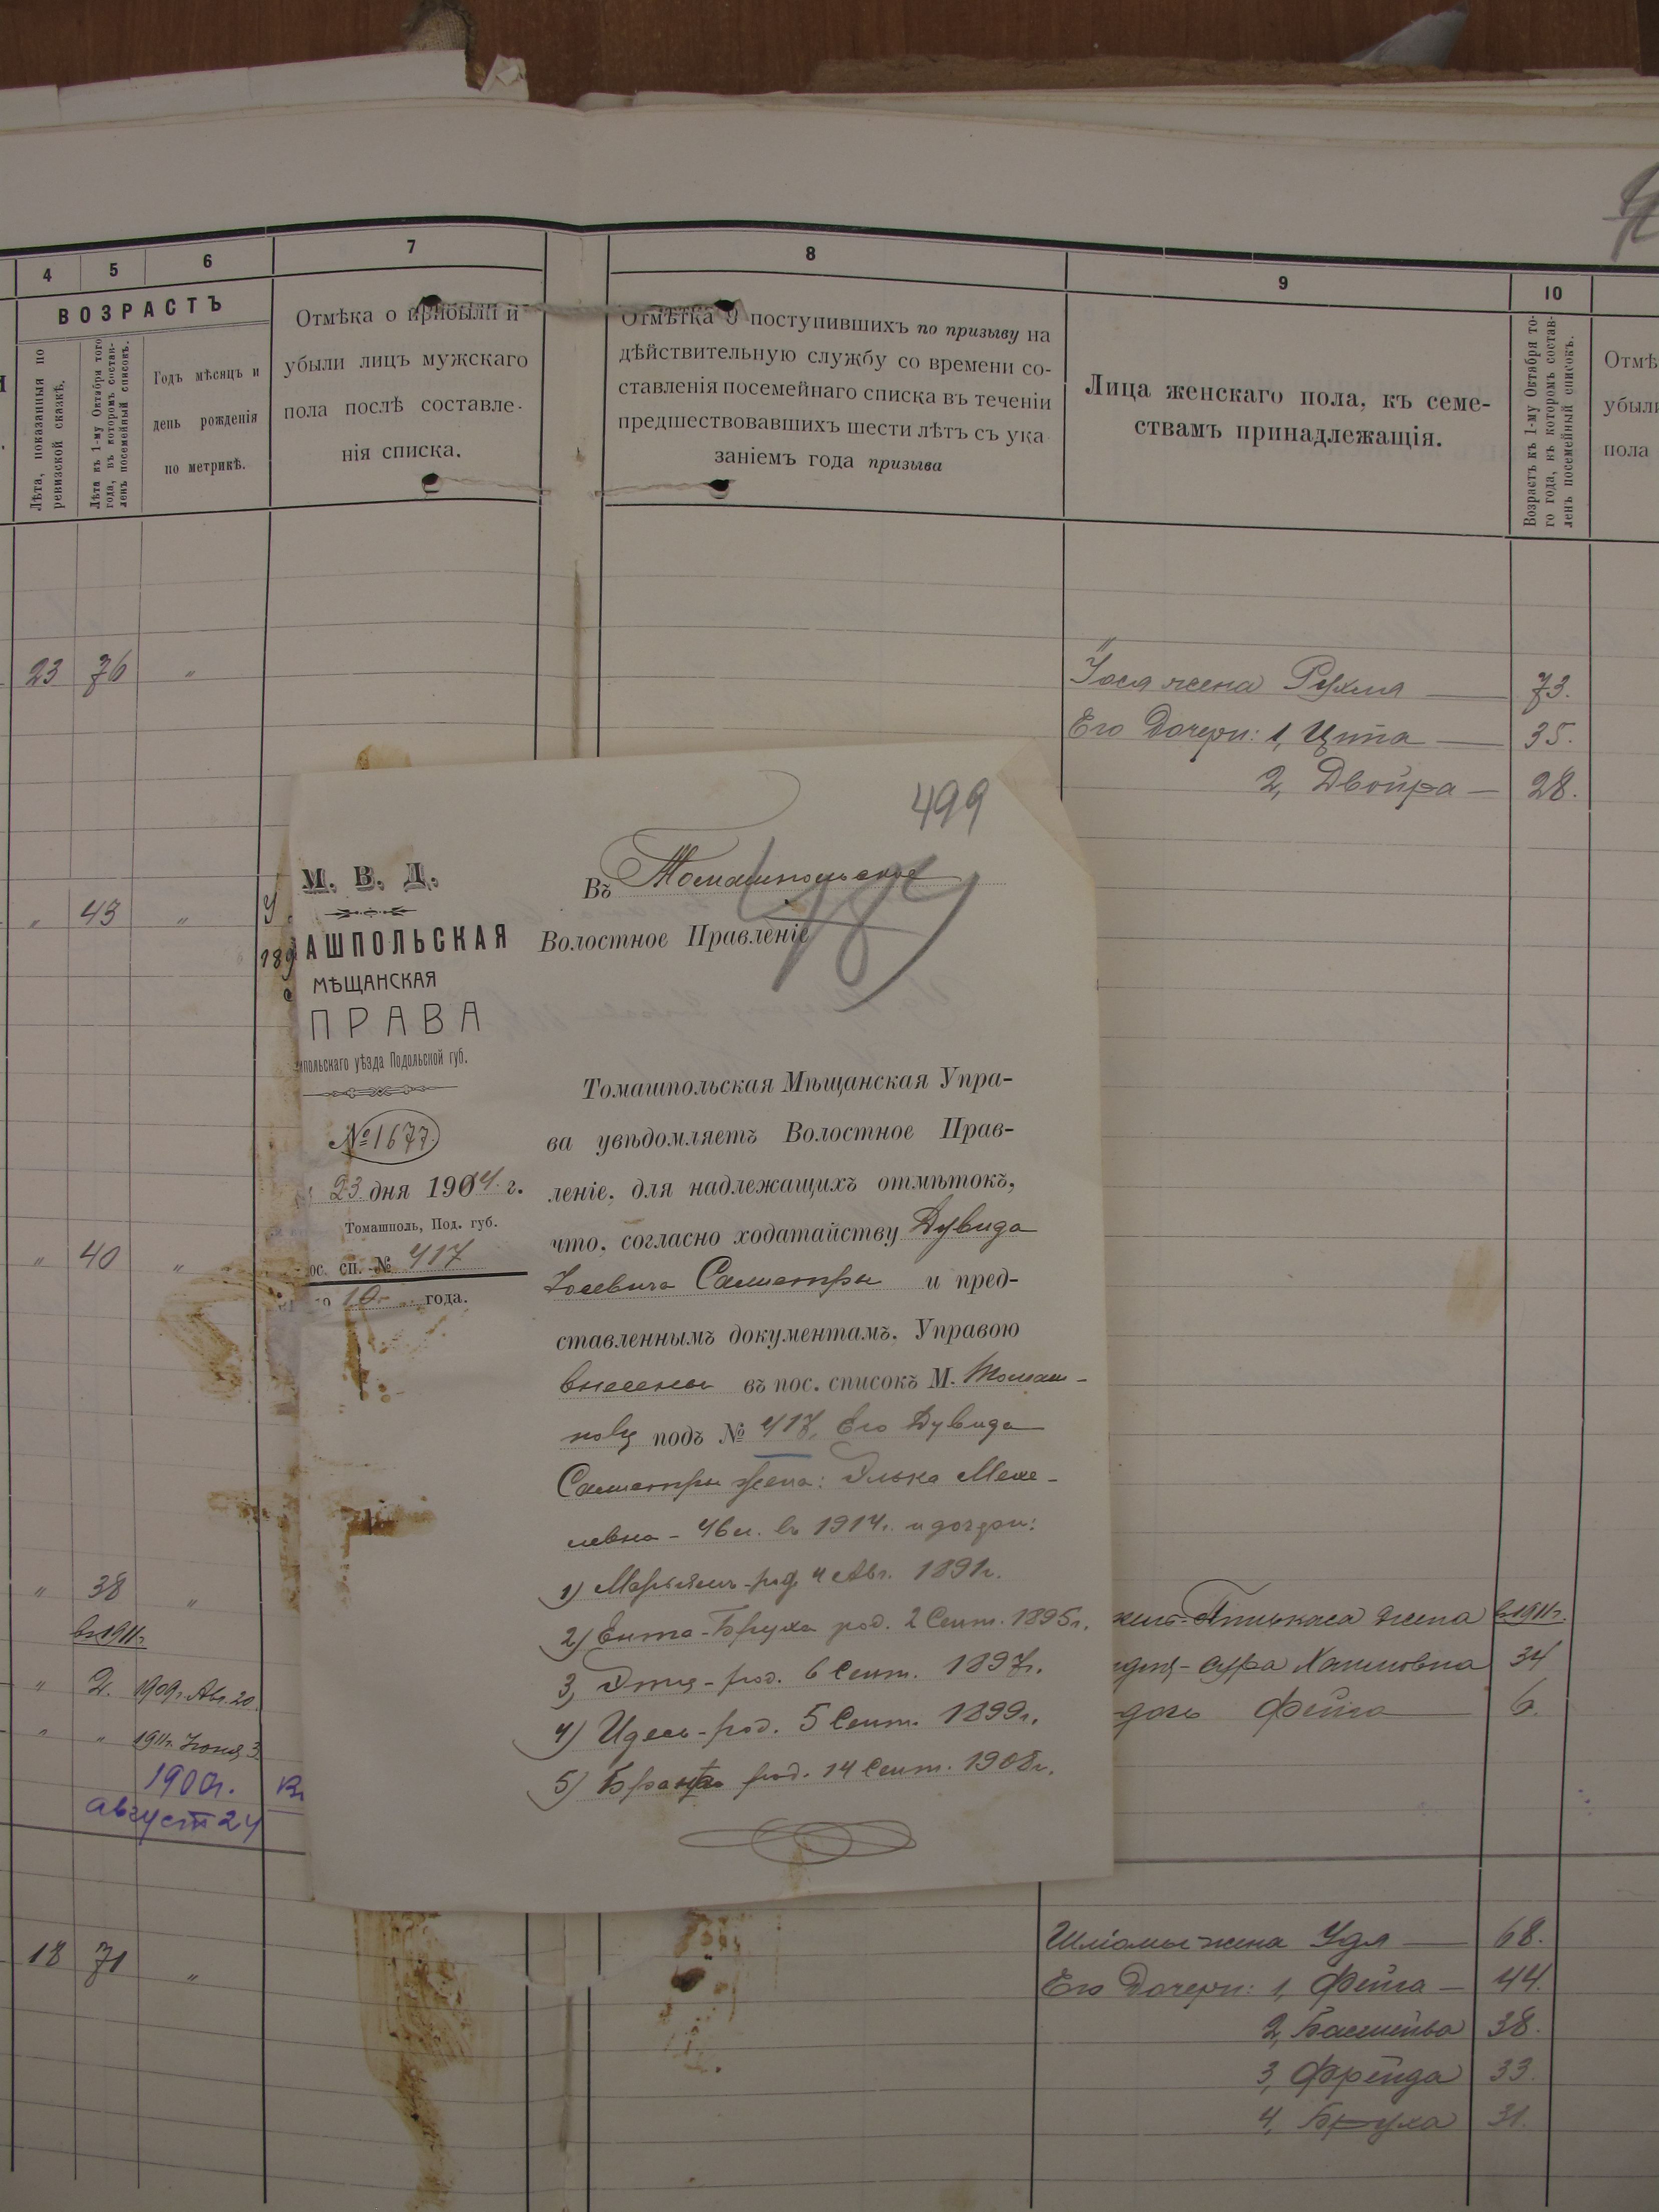 4 5 6 7 8 9 10
ВОЗРАСТЪ
Лѣта, показанныя по ревизской сказкѣ.
Лѣта къ 1-му Октября того года, въ которомъ составленъ посемейный списокъ.
Годъ мѣсяцъ и
день рожденія
по метрикѣ.
Отмѣка о прибыли и
убыли лицъ мужскаго
пола послѣ составле-
нія списка.
Отмѣтка о поступившихъ по призыву на
дѣйствительную службу со времени со-
ставленія посемейнаго списка въ теченіи
предшествовавшихъ шести лѣтъ съ ука
заніемъ года призыва
Лица женскаго пола, къ семе-
ствамъ принадлежащія.
Возрастъ къ 1-му Октября то-
го года, къ которомъ состав-
ленъ посемейный списокъ.
Отмѣ
убыли
пола
23 76 "
жена Рухля — 73.
Его Дочери: 1, Цита — 35.
2, Двойра — 28.
" 43 "
189
" 40 "
" 38 "
въ 1911 г.
" 2. 1909 г. Авг. 20.
" " 1911 г. Іюня 3.
1900 г.
август 24
499
484
М. В. Д.
АШПОЛЬСКАЯ
МѢЩАНСКАЯ
ПРАВА
польскаго уѣзда Подольской губ.
№ 1677.
23 дня 1904 г.
Томашполь, Под. губ.
ос. сп. № 417
10 года.
Въ Томашпольское
Волостное Правленіе
Томашпольская Мѣщанская Упра-
ва увѣдомляетъ Волостное Прав-
леніе, для надлежащихъ отмѣтокъ,
что, согласно ходатайству Дувида
Іосевича Самистры и пред-
ставленнымъ документамъ, Управою
внесены въ пос. списокъ М. Томаш-
полц подъ № 417, Его Дувида
жена: Элька Меше-
левна - 46 л. въ 1914 г. и дочери:
1) Марьямъ - род. 4 Авг. 1891 г.
2) Ента-Бруха род. 2 Сент. 1895 г.
3, Этя - род. 6 Сент. 1897 г.
4) Идесь - род. 5 Сент. 1899 г.
5) род. 14 Сент. 1908 г.
Пинькаса жена в 1911 г.
Сура Хаимовна 34
дочь Фейга — 6.
18 71 "
Шліомы жена Удя — 68.
Его Дочери: 1, Фейга — 44.
2, Башейва 38.
3, Фрейда 33.
4, Бруха 31.